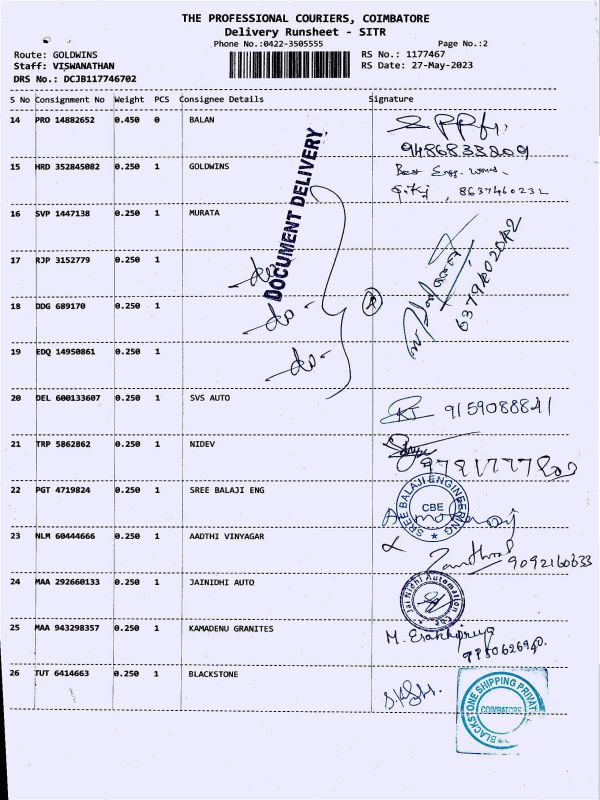 THE PROFESSIONAL COURIERS, COIMBATORE
Delivery Runsheet - SITR
Phone No.:0422-3505555
Page No.:2
Route: GOLDWINS
RS No.: 1177467
Staff: VISWANATHAN
RS Date: 27-May-2023
DRS No.: DCJB117746702
S No Consignment No Weight PCS Consignee Details Signature
14 PRO 14882652 0.450 0 BALAN
9486833809
15 HRD 352845082 0.250 1 GOLDWINS
Best Eng. works
8637460232
DOCUMENT DELIVERY
16 SVP 1447138 0.250 1 MURATA
17 RJP 3152779 0.250 1
-do-
18 DDG 689170 0.250 1
-do-
19 EDQ 14950861 0.250 1
-do-
20 DEL 600133607 0.250 1 SVS AUTO
9159088841
21 TRP 5862862 0.250 1 NIDEV
22 PGT 4719824 0.250 1 SREE BALAJI ENG
SREE BALAJI ENGINEERING
CBE
23 NLM 60444666 0.250 1 AADTHI VINYAGAR
9092160633
24 MAA 292660133 0.250 1 JAINIDHI AUTO
Jai Nidhi Automation Cbe
25 MAA 943298357 0.250 1 KAMADENU GRANITES
26 TUT 6414663 0.250 1 BLACKSTONE
BLACKSTONE SHIPPING PRIVAT
COIMBATORE